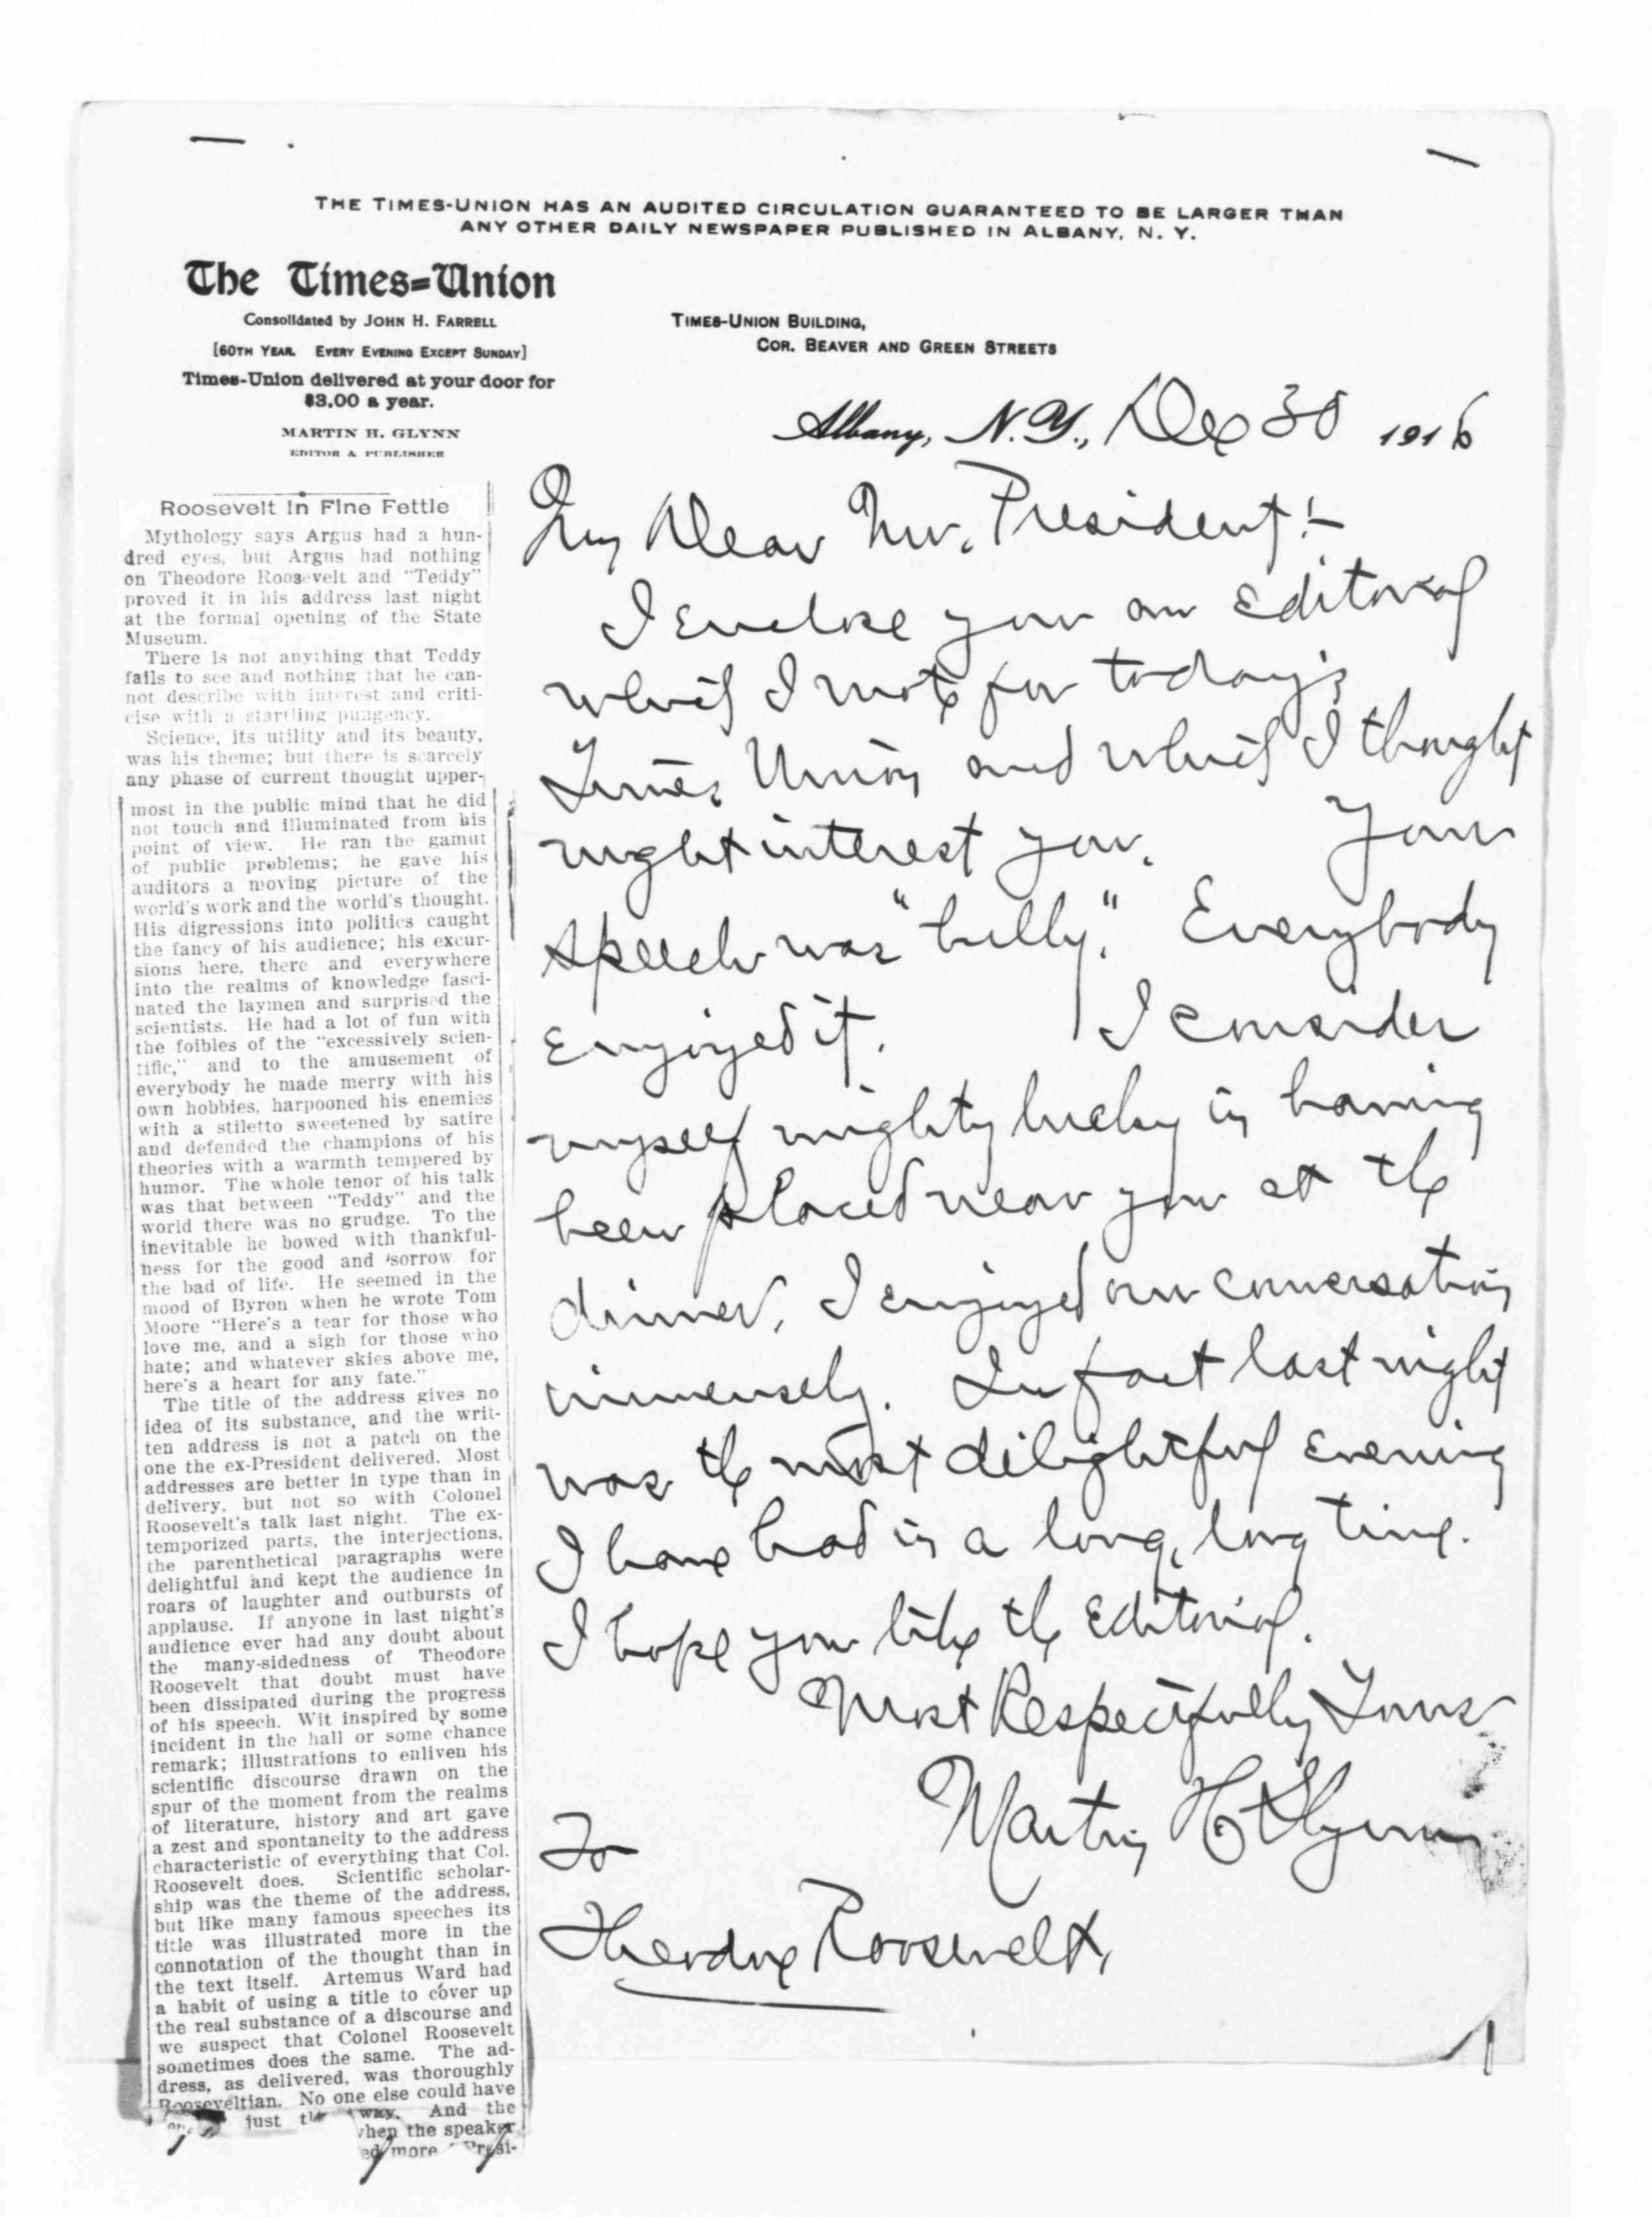 THE TIMES-UNION HAS AN AUDITED CIRCULATION GUARANTEED TO BE LARGER THAN
ANY OTHER DAILY NEWSPAPER PUBLISHED IN ALBANY, N. Y.
The Times=Union
Consolidated by JOHN H. FARRELL
[60TH YEAR. EVERY EVENING EXCEPT SUNDAY]
Times-Union delivered at your door for
$3.00 a year.
MARTIN H. GLYNN
EDITOR & PUBLISHER
TIMES-UNION BUILDING,
COR. BEAVER AND GREEN STREETS
Albany, N. Y., Dec 30 1916
My Dear Mr. President:-
I Enclose you an Editorial
which I wrote for today's
Times Union and which I thought
might interest you. Your
speech was "bully." Everybody
Enjoyed it. I consider
myself mighty lucky in having
been placed near you at the
dinner. I enjoyed our conversation
immensely. In fact last night
was the most delightful Evening
I have had in a long, long time.
I hope you like the Editorial.
Most Respectfully Yours
Martin H Glynn
To
Theodore Roosevelt.
Roosevelt In Fine Fettle
Mythology says Argus had a hun-
dred eyes, but Argus had nothing
on Theodore Roosevelt and "Teddy"
proved it in his address last night
at the formal opening of the State
Museum.
There is not anything that Teddy
fails to see and nothing that he can-
not describe with interest and criti-
cise with a startling pungency.
Science, its utility and its beauty,
was his theme; but there is scarcely
any phase of current thought upper-
most in the public mind that he did
not touch and illuminated from his
point of view. He ran the gamut
of public problems; he gave his
auditors a moving picture of the
world's work and the world's thought.
His digressions into politics caught
the fancy of his audience; his excur-
sions here, there and everywhere
into the realms of knowledge fasci-
nated the laymen and surprised the
scientists. He had a lot of fun with
the foibles of the "excessively scien-
tific," and to the amusement of
everybody he made merry with his
own hobbies, harpooned his enemies
with a stiletto sweetened by satire
and defended the champions of his
theories with a warmth tempered by
humor. The whole tenor of his talk
was that between "Teddy" and the
world there was no grudge. To the
inevitable he bowed with thankful-
ness for the good and sorrow for
the bad of life. He seemed in the
mood of Byron when he wrote Tom
Moore "Here's a tear for those who
love me, and a sigh for those who
hate; and whatever skies above me,
here's a heart for any fate."
The title of the address gives no
idea of its substance, and the writ-
ten address is not a patch on the
one the ex-President delivered. Most
addresses are better in type than in
delivery, but not so with Colonel
Roosevelt's talk last night. The ex-
temporized parts, the interjections,
the parenthetical paragraphs were
delightful and kept the audience in
roars of laughter and outbursts of
applause. If anyone in last night's
audience ever had any doubt about
the many-sidedness of Theodore
Roosevelt that doubt must have
been dissipated during the progress
of his speech. Wit inspired by some
incident in the hall or some chance
remark; illustrations to enliven his
scientific discourse drawn on the
spur of the moment from the realms
of literature, history and art gave
a zest and spontaneity to the address
characteristic of everything that Col.
Roosevelt does. Scientific scholar-
ship was the theme of the address,
but like many famous speeches its
title was illustrated more in the
connotation of the thought than in
the text itself. Artemus Ward had
a habit of using a title to cover up
the real substance of a discourse and
we suspect that Colonel Roosevelt
sometimes does the same. The ad-
dress, as delivered, was thoroughly
Rooseveltian. No one else could have
just way. And the
when the speaker
more Presi-